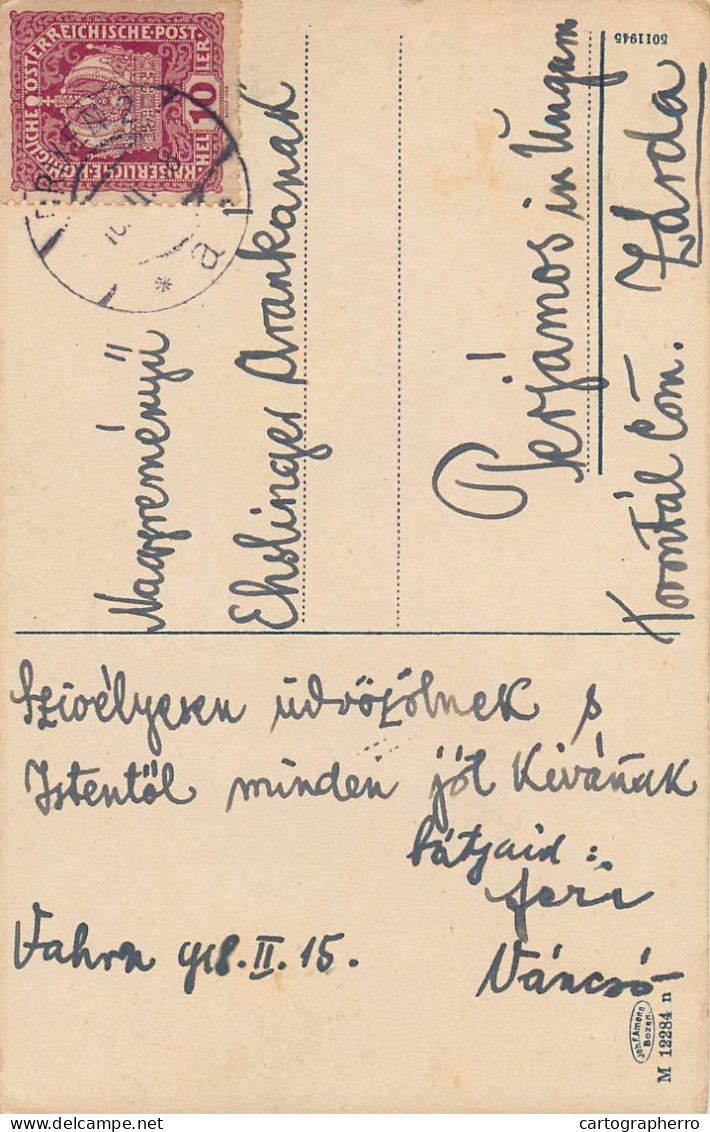 KAISERLICHE KÖNIGLICHE ÖSTERREICHISCHE POST
10 HELLER
a
5011945
Nagyreményű
Ehslinger Arankának
Perjámos in Ungarn
Torontál Com. Zárda
Szivélyesen üdvözölnek s
Istentől minden jót kivánnak
bátyaid:
Feri
Váncsó
Vahrn 918.II.15.
Joh.F.Amonn
Bozen.
M 12284 n
cartographerro